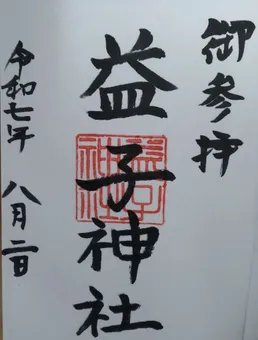 御参拝
益子神社
令和七年 八月二日